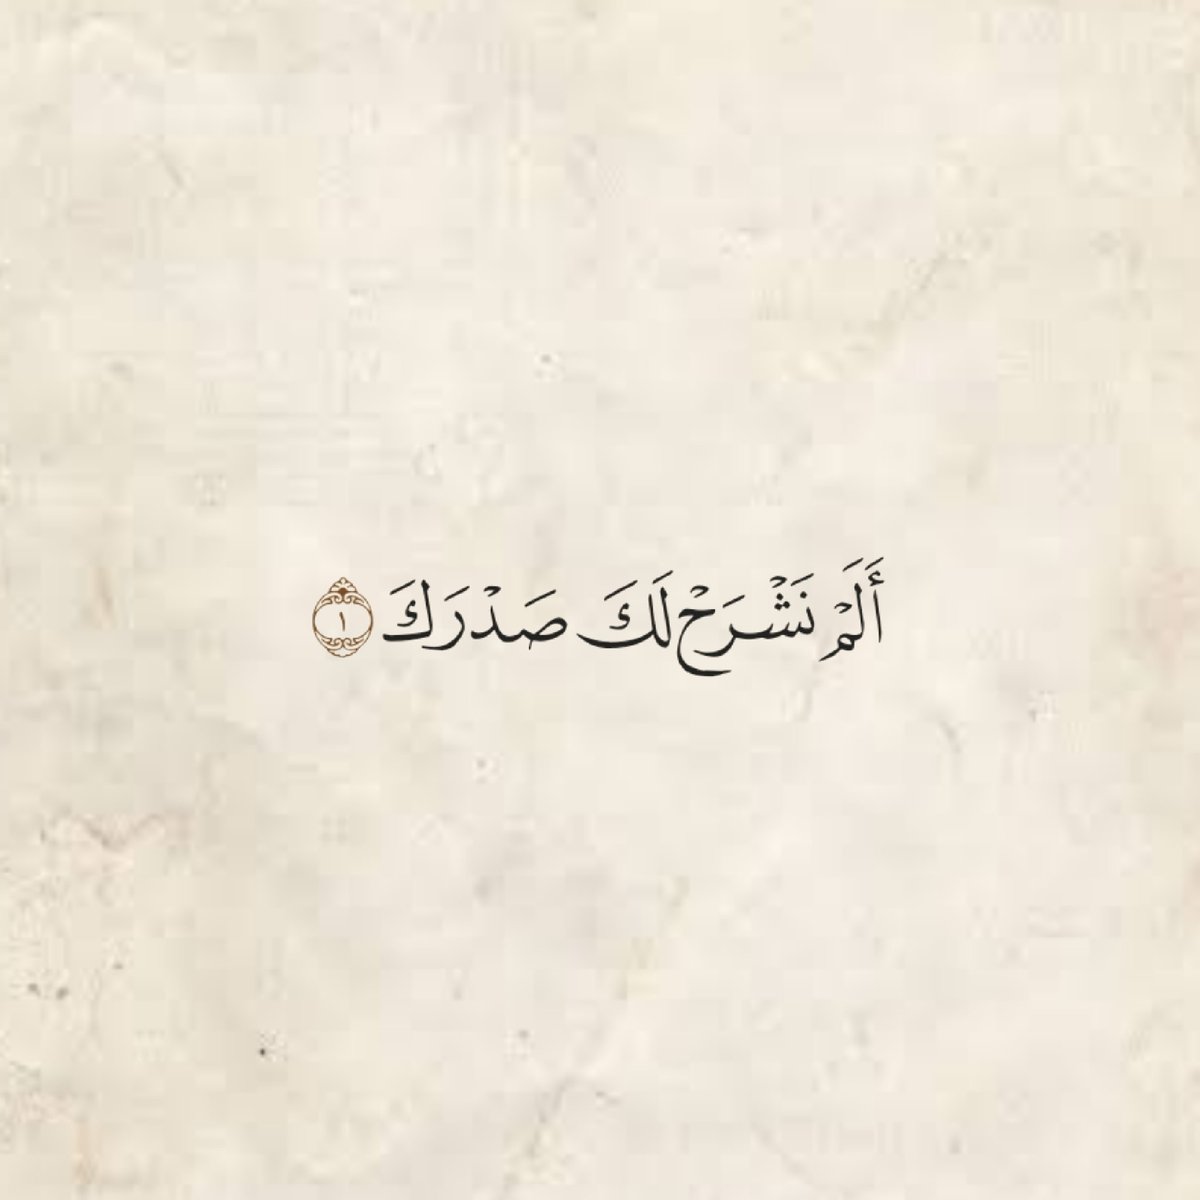 أَلَمْ نَشْرَحْ لَكَ صَدْرَكَ ١